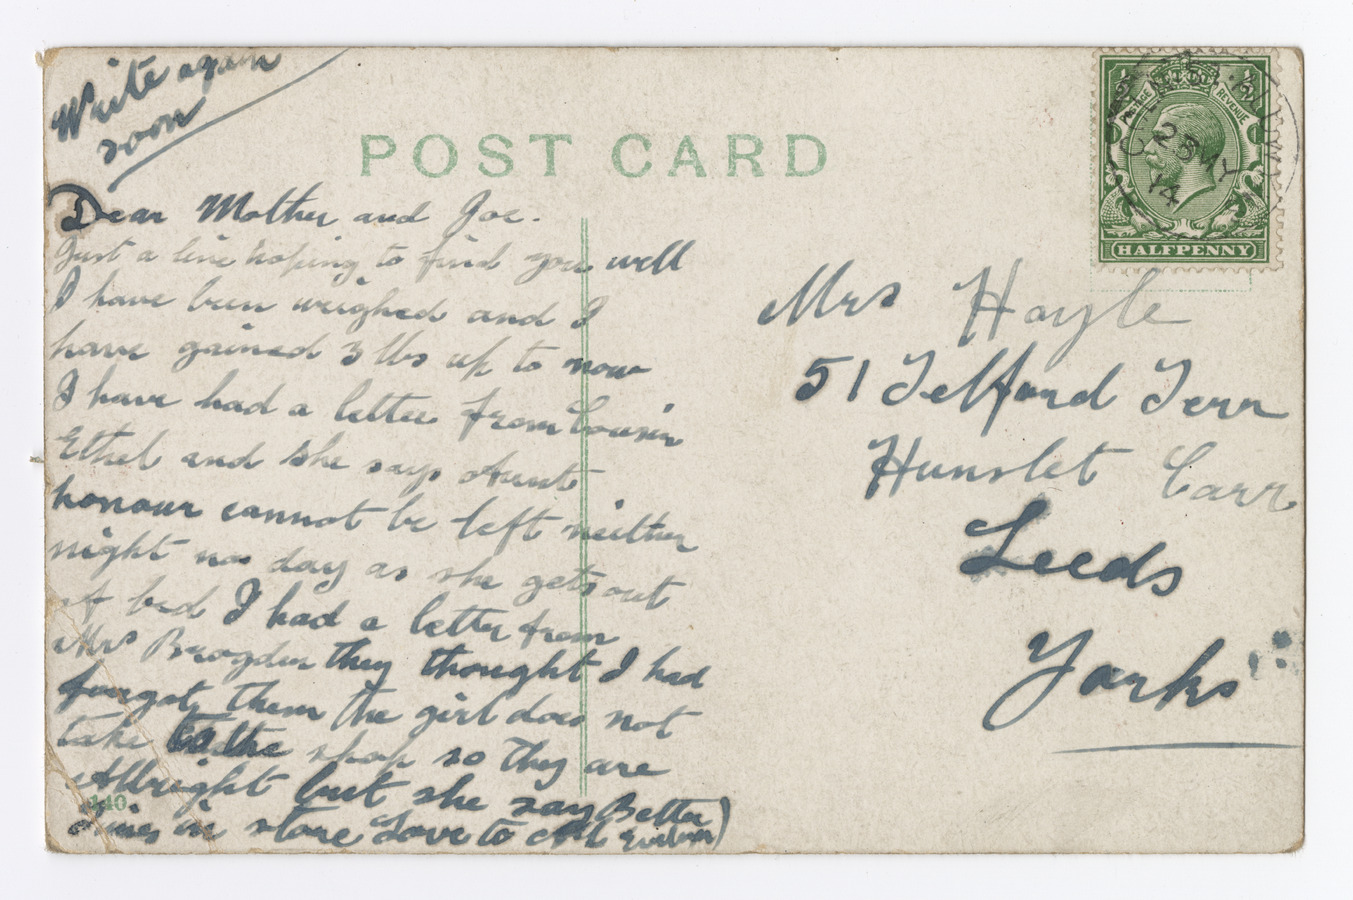 Write again
soon
POST CARD
Dear Mother and Joe.
Just a line hoping to find you well
I have been weighed and I
have gained 3 lbs up to now
I have had a letter from Cousin
Ethel and she says Aunt
honour cannot be left neither
night nor day as she gets out
of bed I had a letter from
Mrs Brogden they thought I had
forgot them the girl does not
take to the shop so they are
Allright but she say Better
times in store Love to all
140
½ ½
POSTAGE REVENUE
HALFPENNY
25 MY
14
Mrs Hoyle
51 Telford Terr
Hunslet Carr
Leeds
Yorks